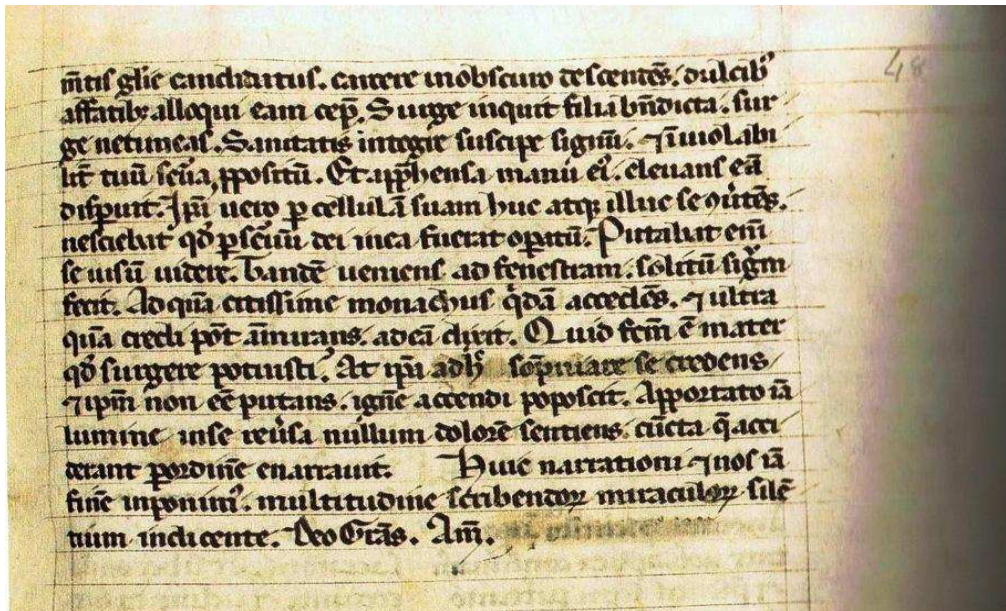 m̄tis gl̄ie candidatus. carcere in obscuro descendēs. dulcibꝰ
affatibꝫ alloqui eam cep̄. Surge inquit filia bn̄dicta. sur
ge ne timeas. Sanitatis integre suscipe signū. ⁊ īuiolabi
lit̄ tuū serua ꝓpositū. Et apprehensa manu eiꝰ. eleuans eā
disparuit. Ip̄a uero ꝑ cellulā suam huc atqꝫ illuc se
nesciebat qd̄ ꝑ seruū dei in ea fuerat oꝑatū. Putabat eni̅
se uisū uidere. Tandē ueniens ad fenestram. solitū signū
fecit. Ad quā citissime monachus qͥdā accedēs. ⁊ ultra
quā credi pōt āmirans. ad eā dixit. Quid fcm̄ ē mater
qd̄ surgere potuisti. At ip̄a adhͨ sōpniare se credens
⁊ ip̄m non eē putans. ignē accendi poposcit. Apportato iā
lumine in se reuͥsa nullum dolorē sentiens. cūcta q̄ acci
derant ꝑ ordinē enarrauit. Huic narrationi ⁊ nos iā
finē inponimꝰ. multitudine scribendoꝝ miraculoꝝ silē
tium indicente. Deo Gr̄as. Am̄.
48